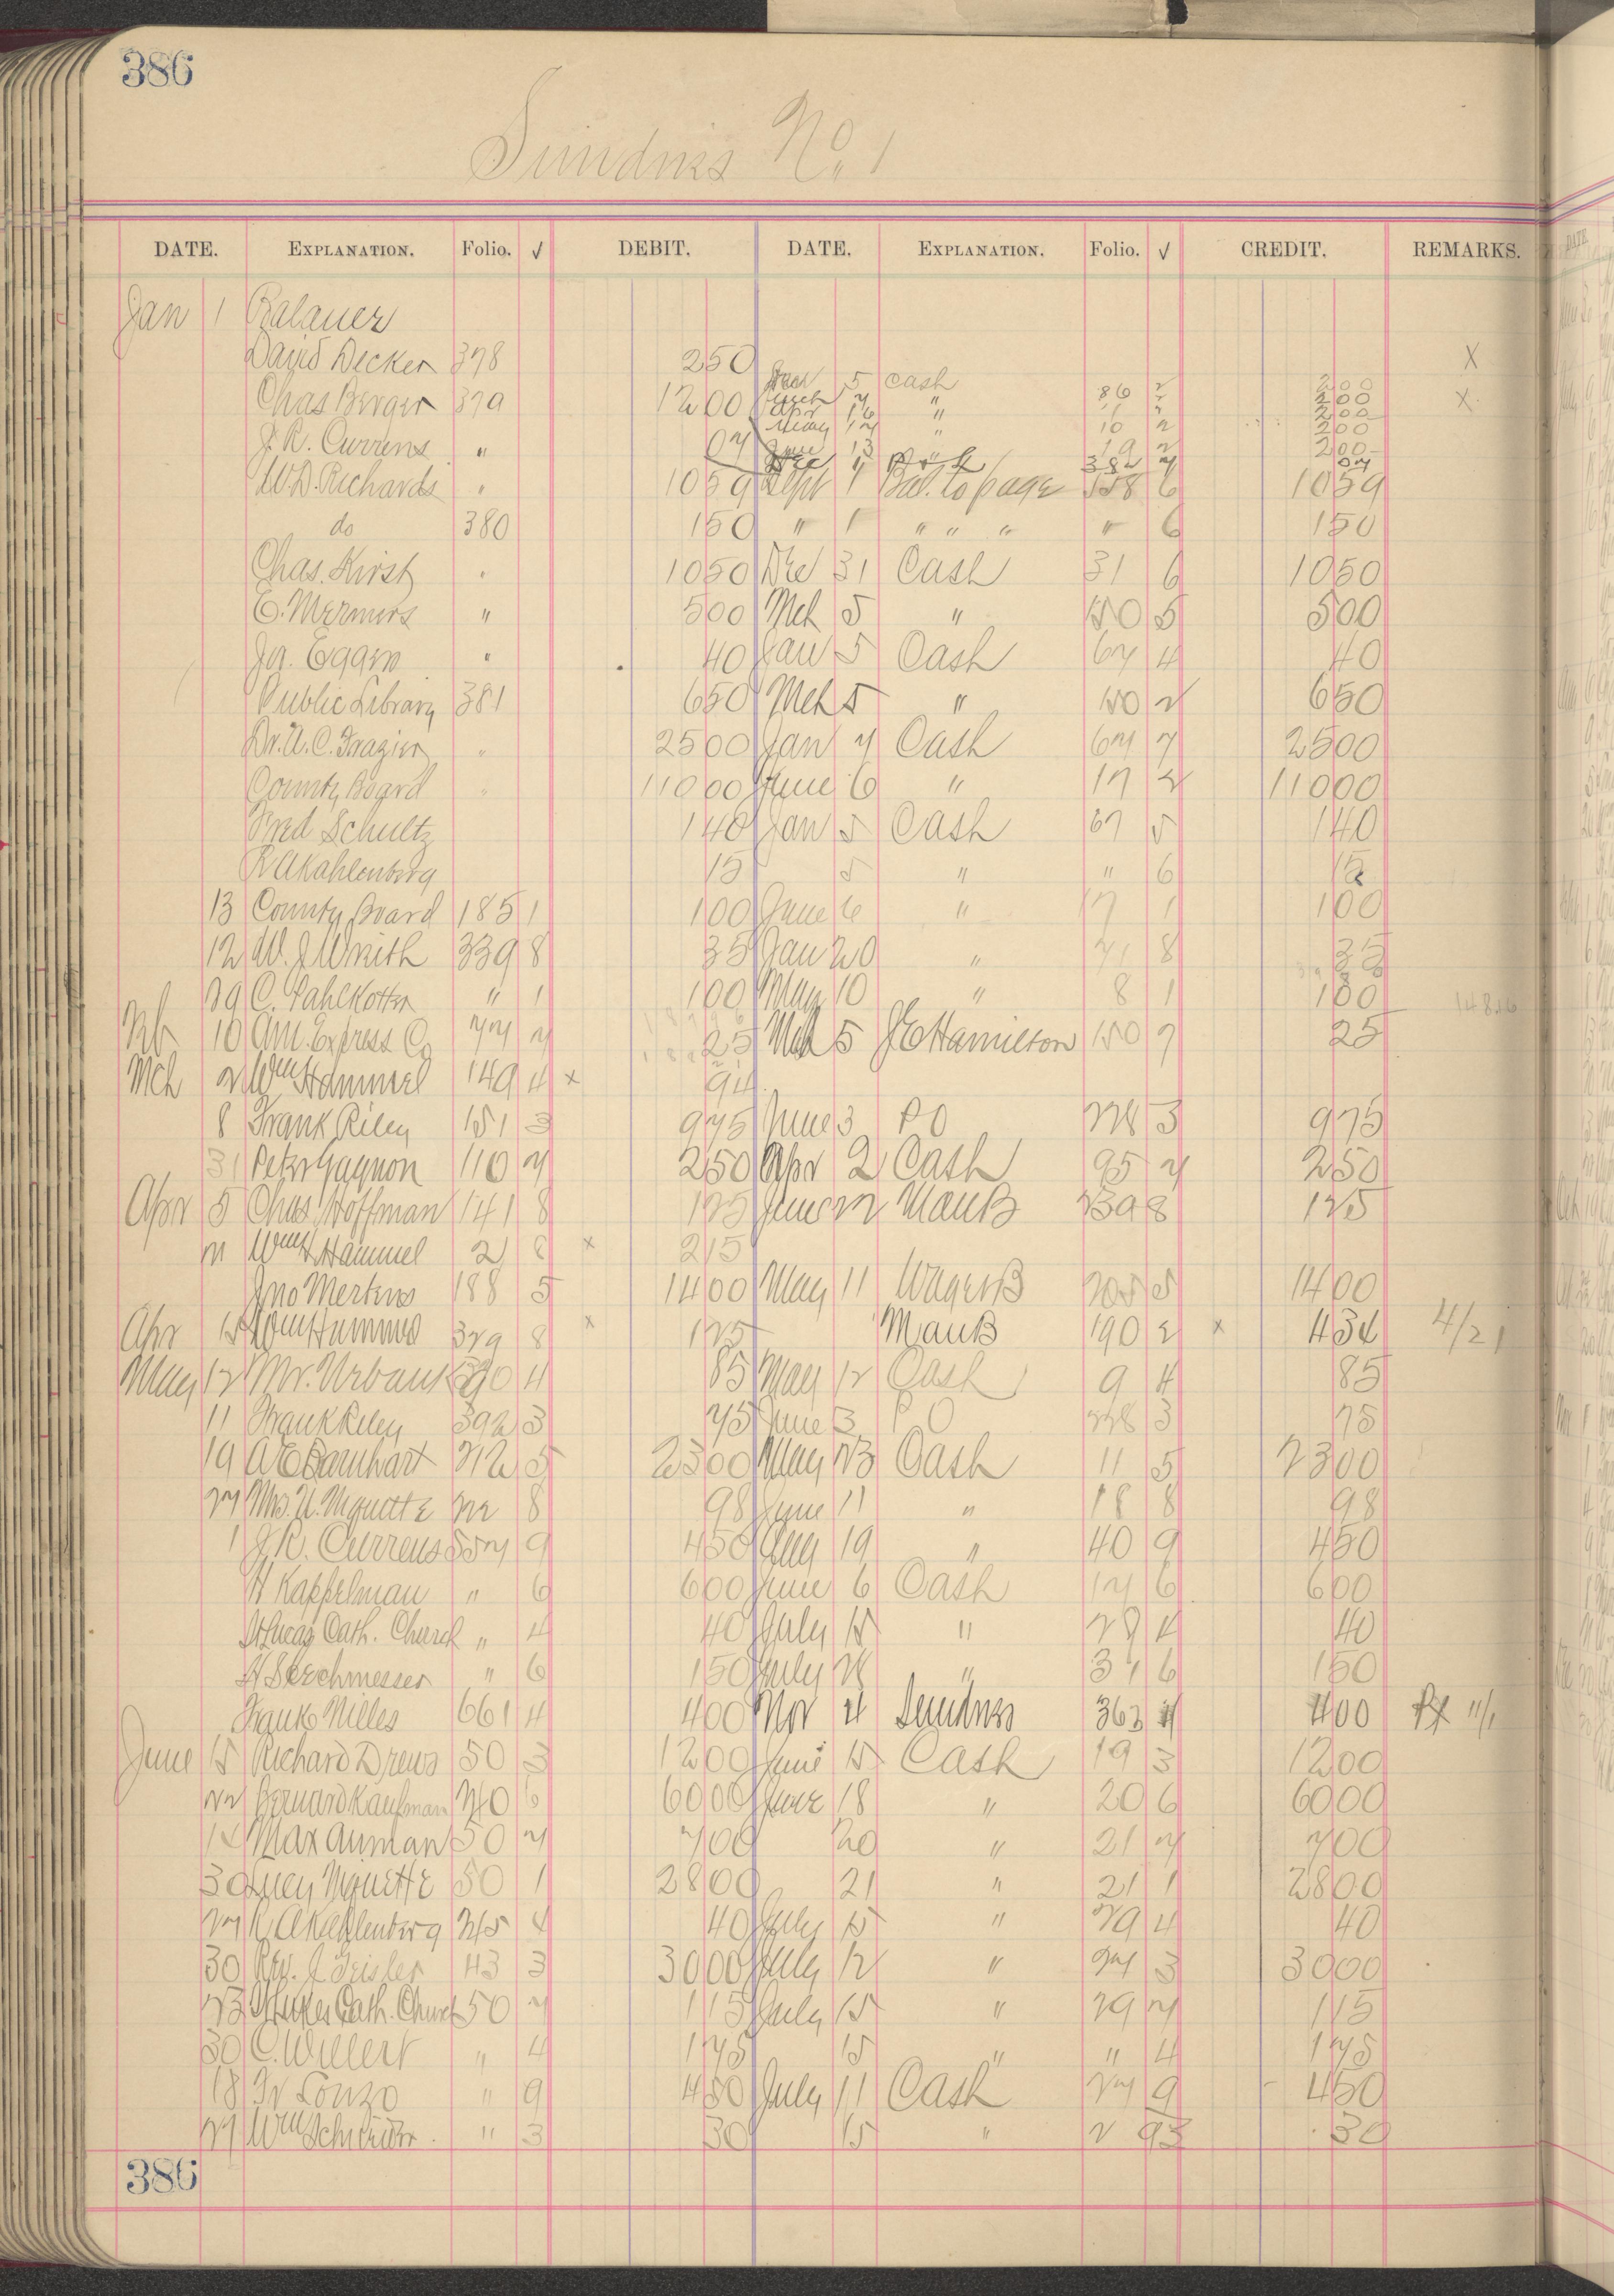 386
Sundries No. 1
DATE. EXPLANATION. Folio. √ DEBIT. DATE. EXPLANATION. Folio. √ CREDIT. REMARKS.
Jan 1 Balance
David Decker 378 250 X
5 Cash 200
Chas Berger 379 1200 " 86 200 X
" 11 200
May " 10 2 200
J. R. Currens " 07 June 13 " 19 2 200
382 7 07
W.D. Richards " 1059 Sept 1 Bal. to page 158 6 1059
do 380 150 " 1 " " " " 6 150
Chas. Kirst " 1050 Dec 31 Cash 31 6 1050
E. Mermers " 500 Mch 5 " 150 5 500
" 40 Jan 5 Cash 67 4 40
Public Library 381 650 Mch 5 " 150 2 650
Dr. A. C. Frazier " 2500 Jan 7 Cash 67 7 2500
County Board " 11000 June 6 " 17 2 11000
Fred Schultz 140 Jan 5 Cash 67 5 140
R A Kahlenberg 15 5 " " 6 15
13 County Board 185 1 100 June 6 " 17 1 100
12 W. J. Wrieth 339 8 35 Jan 20 " 71 8 35
29 C. Pahlkotter " 1 100 May 10 " 8 1 100
Feb 10 Am. Express Co 77 7 25 Mch 5 J E Hamilton 150 7 25
Mch 2 Wm Hammel 149 4 x 94
8 Frank Riley 151 3 975 June 3 P O 228 3 975
31 Peter Gagnon 110 7 250 Apr 2 Cash 95 7 250
Apr 5 Chas. Hoffman 141 8 125 June 22 Man B 239 8 125
Wm Hammel 2 8 x 215
Jno Mertens 188 5 1400 May 11 Wages B 205 5 1400
Apr 15 Wm Hammel 329 8 x 125 Man B 190 2 x 434 4/21
May 12 Mr. Urbank 390 4 85 May 12 Cash 9 4 85
11 Frank Riley 392 3 75 June 3 P O 228 3 75
19 A E Barnhart 212 5 2300 May 23 Cash 11 5 2300
27 Mrs. U. Miquette 212 8 98 June 11 " 18 8 98
1 J. R. Currens 557 9 450 Aug 19 " 40 9 450
H Kappelman " 6 600 June 6 Cash 17 6 600
St Lucas Cath. Church " 4 40 July 15 " 29 4 40
" 6 150 July 28 " 31 6 150
Frank Nilles 661 4 400 Nov 4 Sundries 363 4 400 11/1
June 15 Richard Drews 50 3 1200 June 15 Cash 19 3 1200
22 Bernard Kaufman 240 6 6000 June 18 " 20 6 6000
14 Max Auman 50 7 700 20 " 21 7 700
30 Lucy Miquette 50 1 2800 21 " 21 1 2800
27 R. A Kahlenberg 245 4 40 July 15 " 29 4 40
30 Rev. J. Geisler 43 3 3000 July 12 " 27 3 3000
23 St Lukes Cath. Church 50 7 115 July 15 " 29 7 115
30 C. Willert " 4 175 15 " " 4 175
18 Fr Lonzo " 9 450 July 11 Cash 27 9 450
27 Wm Schroeder " 3 30 15 " 2 93 30
386